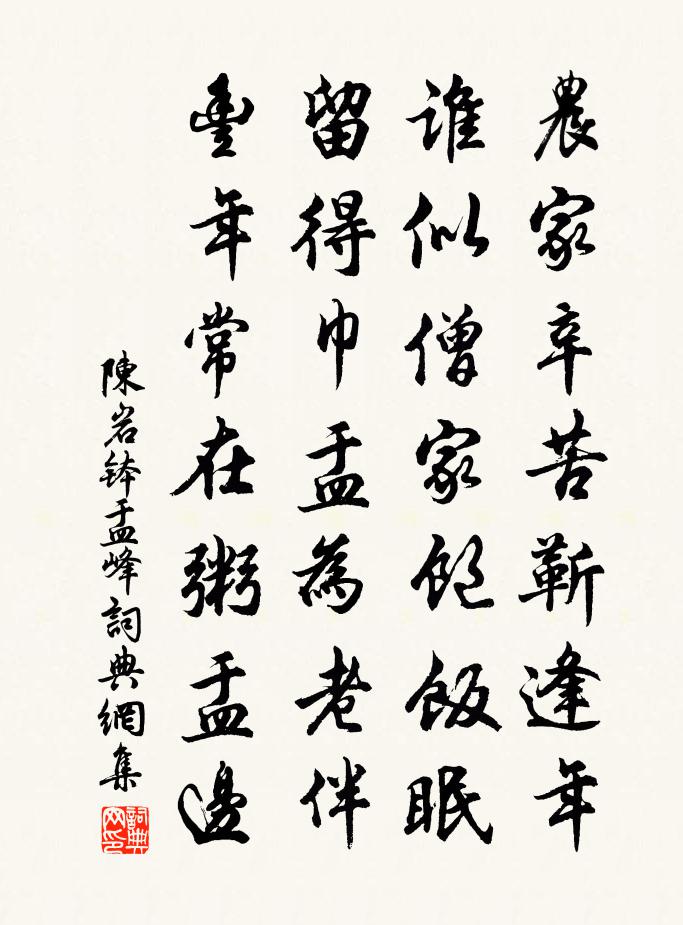 農家辛苦蘄逢年
誰似僧家飽飯眠
留得巾盂為老伴
豐年常在粥盂邊
陳岩鉢盂峰詞典網集
詞典
网印